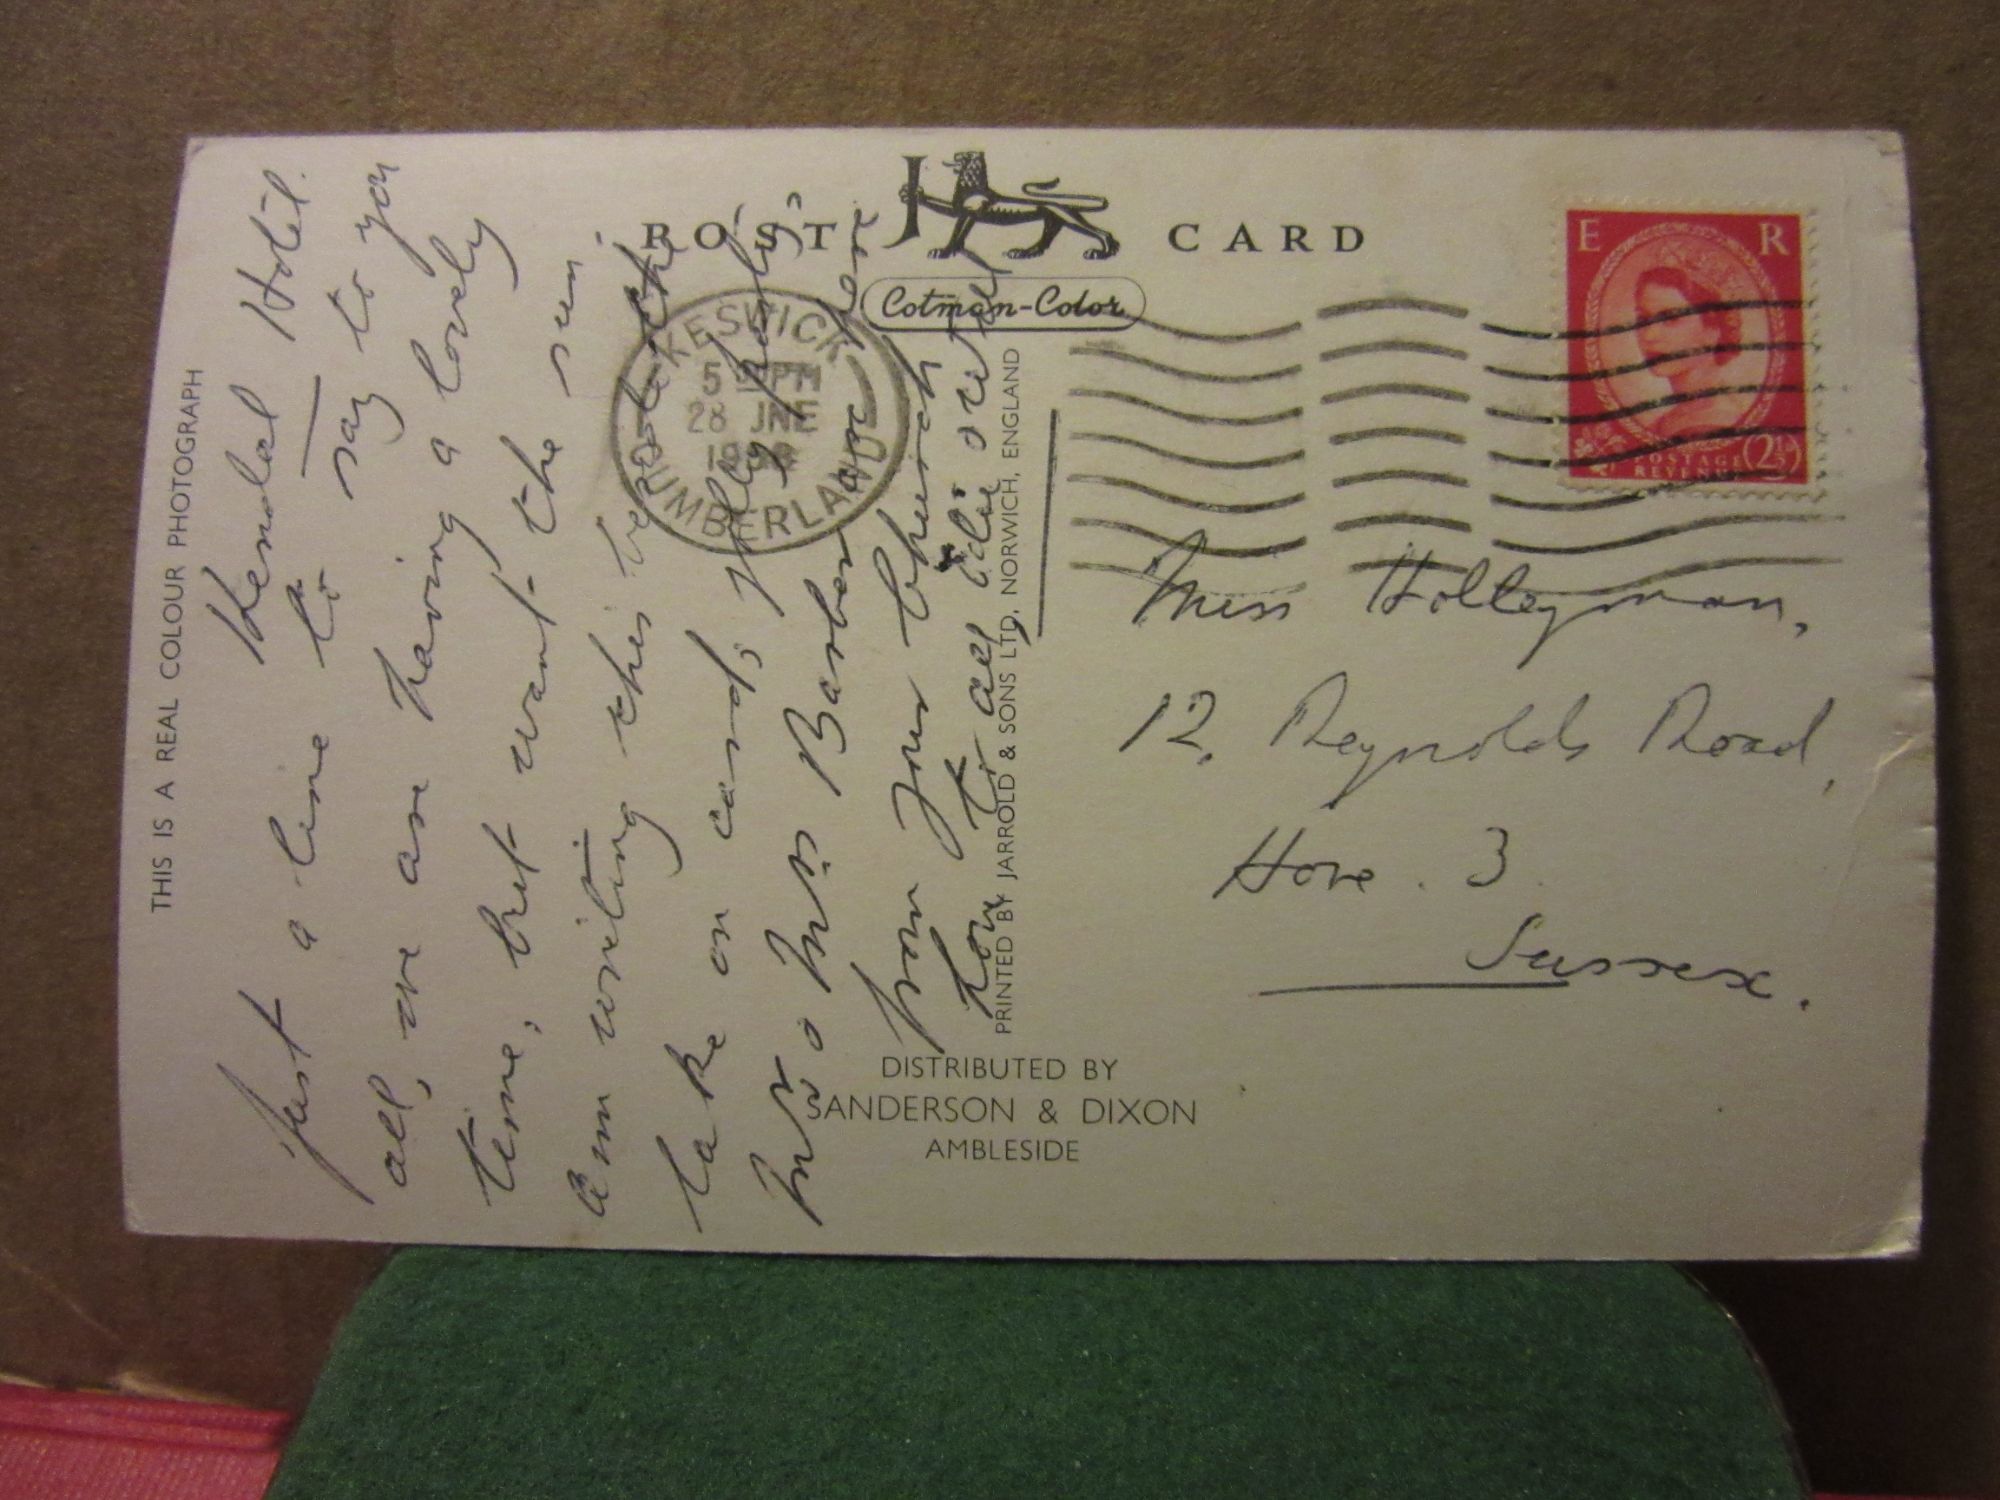 THIS IS A REAL COLOUR PHOTOGRAPH
POST CARD
Cotman-Color
KESWICK
5 PM
28 JNE
CUMBERLAND
E R
POSTAGE
REVENUE
2½D
Hotel.
Just a line to say to you
all, we are having a lovely
time, but want the sun
am writing this by the
lake on card,
Mr & Mrs Barber are here
from your Church
Love to all,
PRINTED BY JARROLD & SONS LTD, NORWICH, ENGLAND
DISTRIBUTED BY
SANDERSON & DIXON
AMBLESIDE
Miss Holleyman,
12, Reynolds Road,
Hove . 3
Sussex.